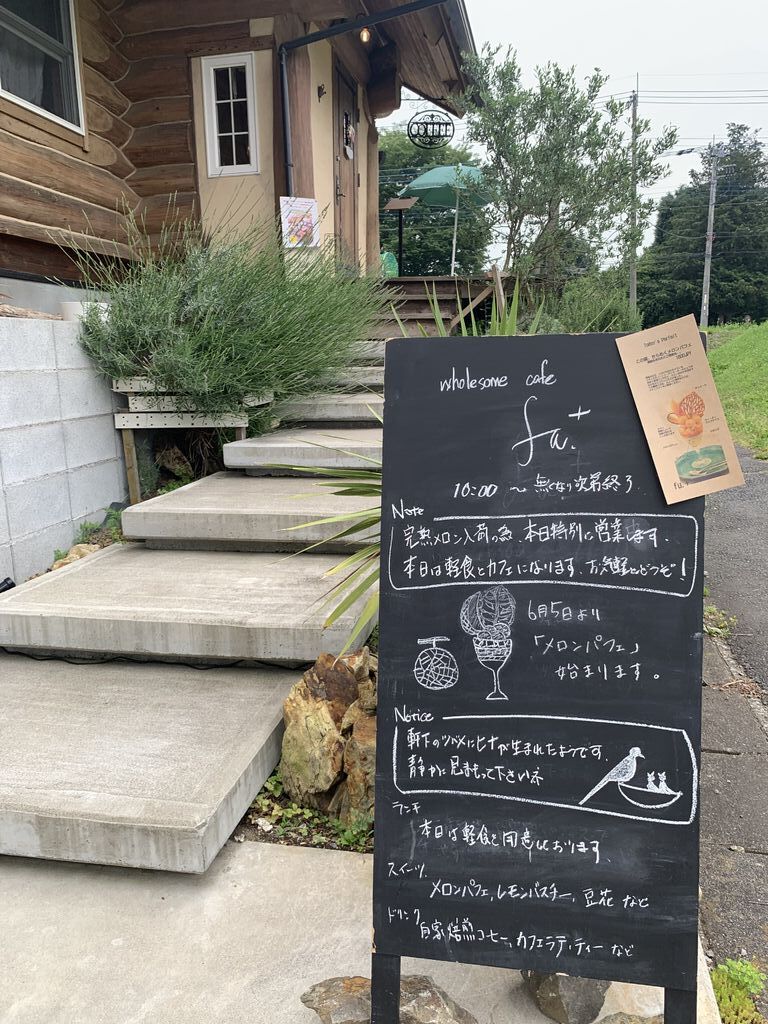 wholesome cafe
fu.+
10:00 〜 無くなり次第終了
Note
完熟メロン入荷の為、本日特別に営業します。
本日は軽食とカフェになります、お気軽にどうぞ!
6月5日より
「メロンパフェ」
始まります。
Notice
軒下のツバメにヒナが生まれたようです。
静かに見まもって下さいネ
ランチ
本日は軽食を用意しております。
スイーツ
メロンパフェ、レモンバスチー、豆花 など
ドリンク
自家焙煎コーヒー、カフェラテ、ティー など
fu.+